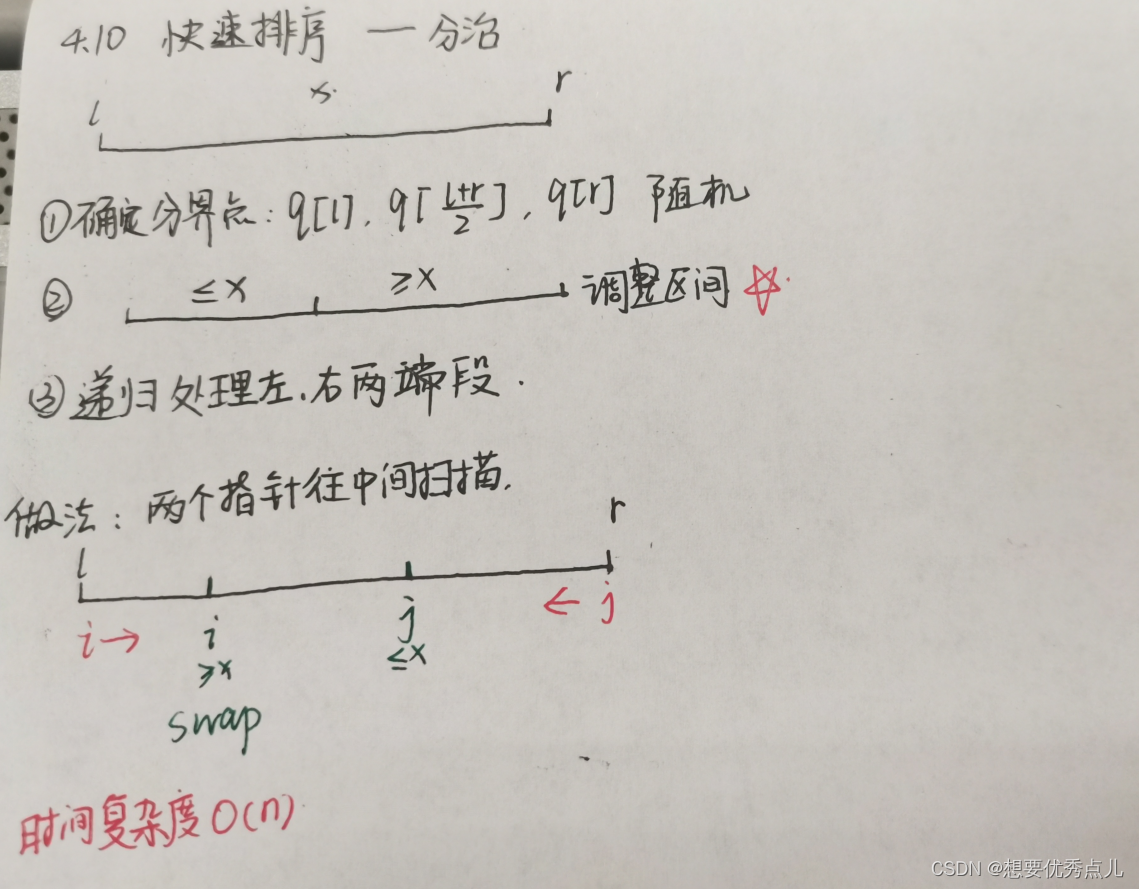 4.10 快速排序 — 分治
l x r
①确定分界点: q[l], q[\frac{l+r}{2}], q[r] 随机
② ≤x ≥x 调整区间 ☆
③递归处理左、右两端段.
做法: 两个指针往中间扫描.
l r
i→ i j ← j
≥x ≤x
swap
时间复杂度O(n)
CSDN @想要优秀点儿